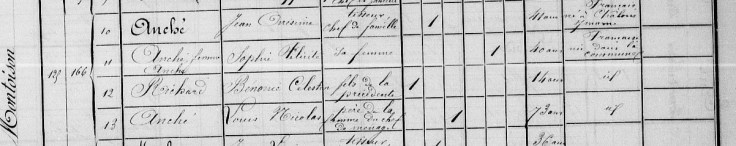 10 Anché Jean Onésime tisseur chef de famille 1 41 ans français né à Châlons s/marne
11 Anché femme Anché Sophie Félicité Sa femme 1 40 ans française née dans la commune
135 166
12 Richard Benoni Célestin fils de la précédente 1 14 ans id
13 Anché Louis Nicolas père de la femme du chef de ménage 1 73 ans id
36 ans